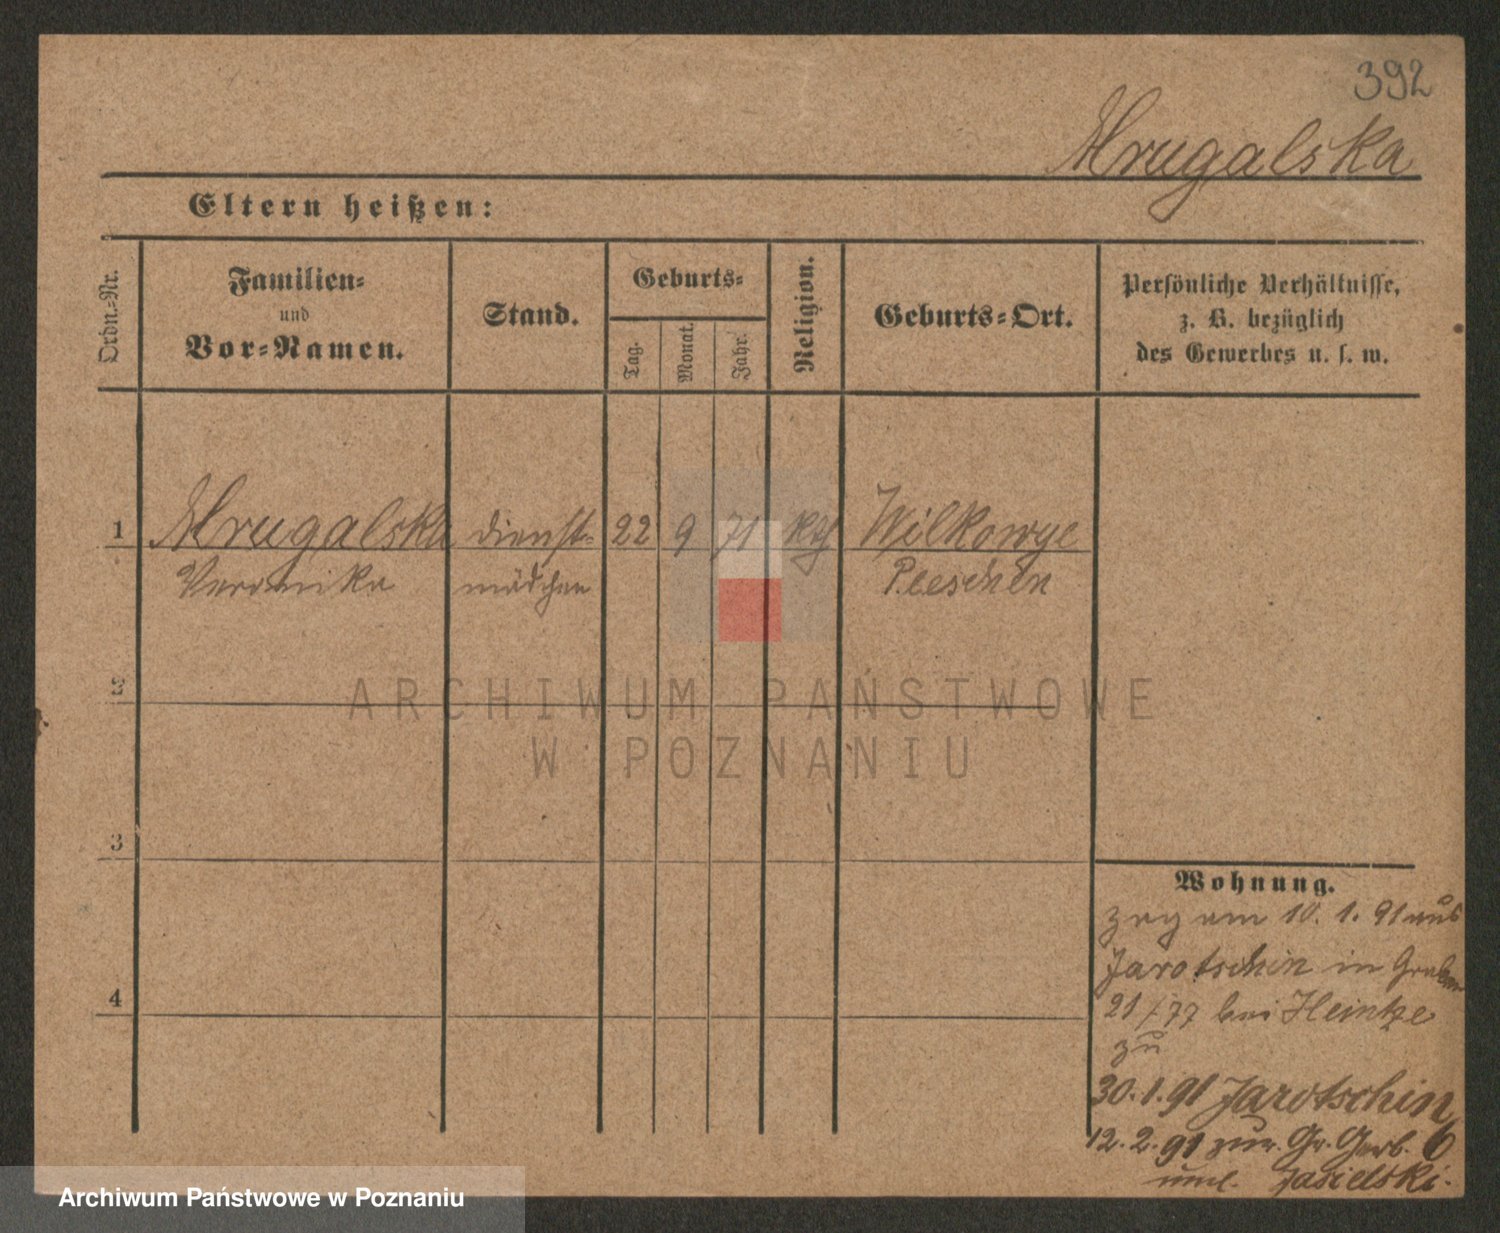 392
Mrugalska
Eltern heißen:
Ordn.-Nr.
Familien-
und
Vor-Namen.
Stand.
Geburts-
Tag.
Monat.
Jahr.
Religion.
Geburts-Ort.
Persönliche Verhältnisse,
z. B. bezüglich
des Gewerbes u. s. w.
1 Mrugalska dienst- 22 9 71 kth Wilkowye
Veronika mädchen Pleschen
2
ARCHIWUM PAŃSTWOWE
W POZNANIU
3
Wohnung.
zog am 10. 1. 91 aus
Jarotschin in
21/77 bei Heintze
zu
4
30. 1. 91 Jarotschin
12. 2. 91 zur. Gr. Gerb. 6
Jasielski.
Archiwum Państwowe w Poznaniu